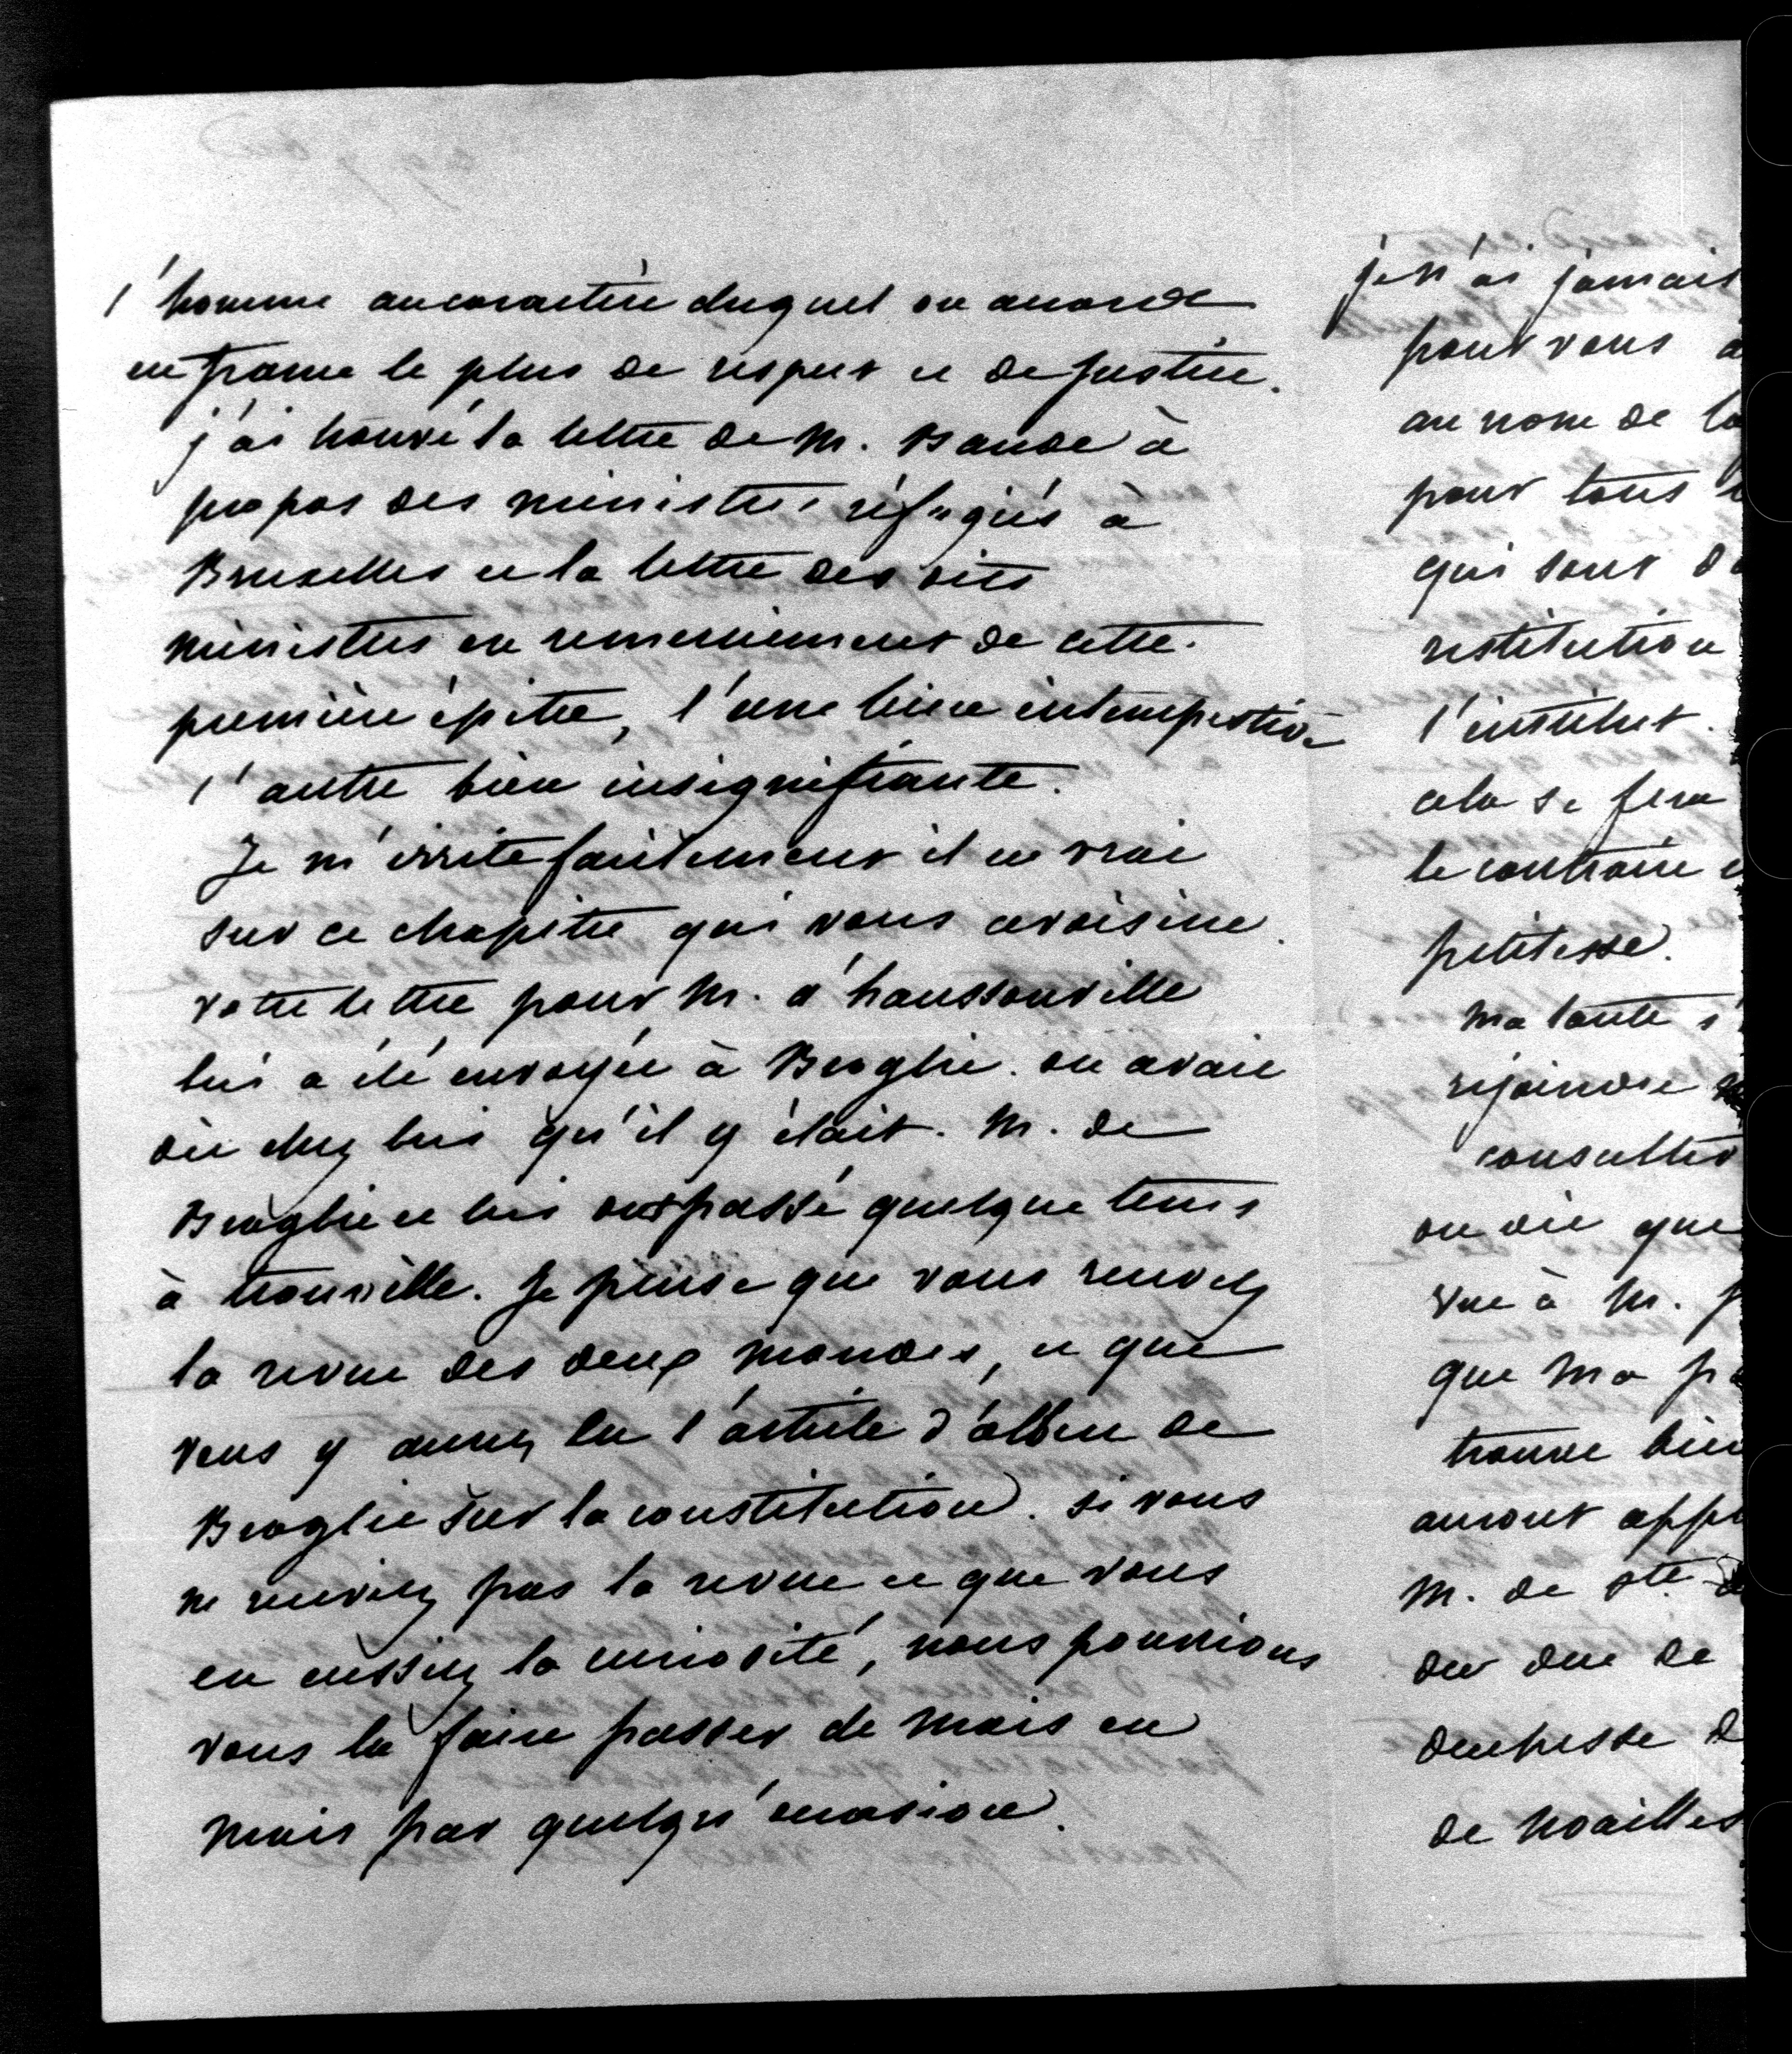 l'homme au caractère duquel on accorde
en france le plus de respect et de justice.
j'ai trouvé la lettre de M. Baude à
propos des ministres réfugiés à
Bruxelles et la lettre des dits
ministres en remerciement de cette
première épitre, l'une bien intempestive
l'autre bien insignifiante.
Je m'irrite facilement il est vrai
sur ce chapitre qui vous avoisine.
votre lettre pour M. d'haussonville
lui a été envoyée à Broglie. on avait
dit chez lui qu'il y était. M. de
Broglie et lui ont passé quelque tems
à trouville. Je pense que vous recevez
la revue des deux mondes, et que
vous y aurez lu l'article d'albert de
Broglie sur la constitution. si vous
ne recevez pas la revue et que vous
en eussiez la curiosité, nous pourrions
vous la faire passer de mois en
mois par quelqu'occasion.
je n'ai jamais
pour vous
au nom de la
pour tous
qui sont
restitution
l'institut.
cela se fera
le contraire
petitesse.
ma tante
rejoindre
consulter
on dit que
vue à M.
que ma
trouve bien
auront
M. de Ste
du duc de
duchesse
de Noailles